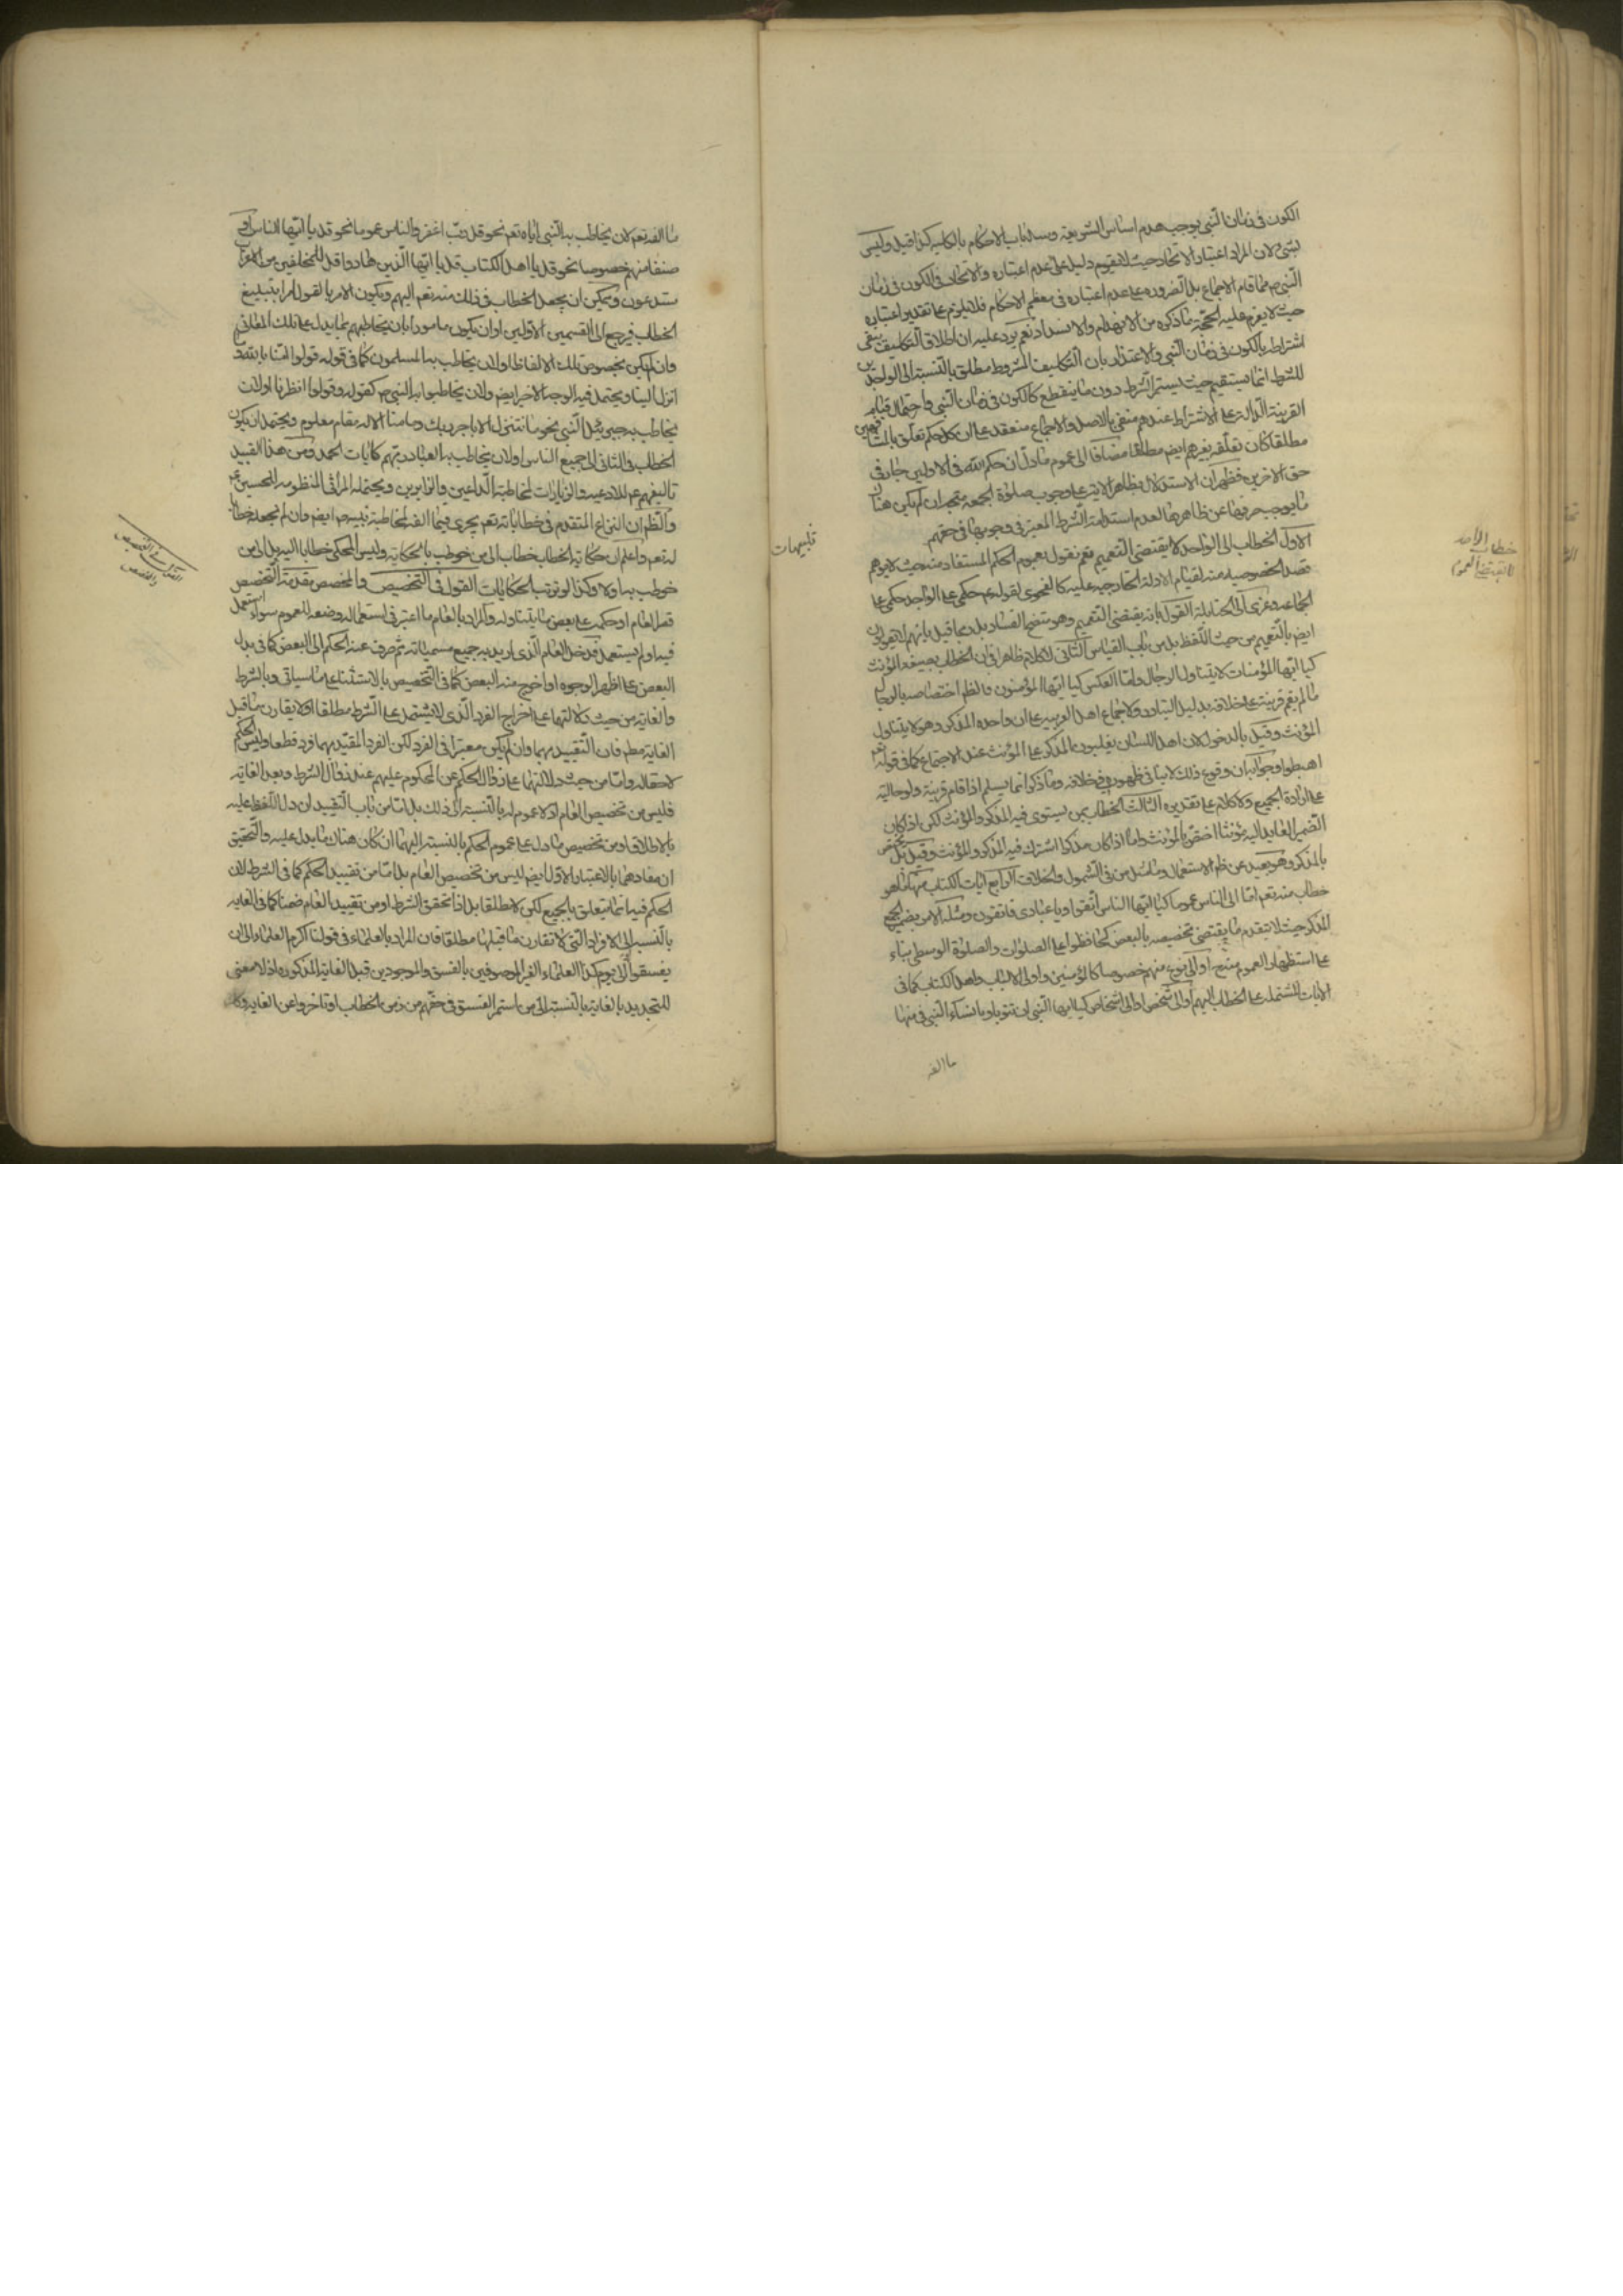 الكون فى زمان النبى يوجب هدم اساس الشريعة وسد باب الاحكام بالكليه كذا قيل وليس
بشئ لان المراد اعتبار الاتحاد حيث لا يقوم دليل على عدم اعتباره والاتحاد فى الكون فى زمان
النبى ص مما قام الاجماع بل الضرورة على عدم اعتباره فى معظم الاحكام فلا يلزم على تقدير اعتباره
حيث لا يقوم عليه الحجة ما ذكره من الانهدام والانسداد نعم يرد عليه ان اطلاق التكليف ينفى
اشتراطه بالكون فى زمان النبى والاعتذار بان التكليف المشروط مطلق بالنسبة الى الواجدين
للشرط انما يستقيم حيث يستمر الشرط دون ما ينقطع كالكون فى زمان النبى واحتمال قيام
القرينة الدالة على الاشتراط عندهم منفى بالاصل والاجماع منعقد على ان كل حكم تعلق بالمشافهين
مطلقا كان تعلقه بغيرهم ايض مطلقا مضافا الى عموم ما دل ان حكم الله فى الاولين جار فى
حق الاخرين فظهر ان الاستدلال بظاهر الاية على وجوب صلوة الجمعة متجه ان لم يكن هناك
ما يوجب صرفها عن ظاهرها لعدم استدامة الشرط المعتبر فى وجوبها فى حقهم
تنبيهات
الاول الخطاب الى الواحد لا يقتضى التعميم نعم نقول بعموم الحكم المستفاد منه حيث لا يوهم
خطاب الأحد لا يقتضى العموم
قصد الخصوصيه منه لقيام الادلة الخارجيه عليه كالفحوى لقوله ع حكمى على الواحد حكمى على
الجماعه وعزى الى الحنابلة القول بانه يقتضى التعميم وهو متضح الفساد بل ربما قيل بانهم لا يقولون
ايض بالتعميم من حيث اللفظ بل من باب القياس الثانى لا كلام ظاهرا فى ان الخطاب بصيغه المؤنث
كيا ايتها المؤمنات لا يتناول الرجال واما العكس كيا ايها المؤمنون فالظم اختصاصه بالرجال
ما لم يقم قرينة على خلافه بدليل التبادر ولاجماع اهل العربيه على ان واحده المذكر وهو لا يتناول
المؤنث وقيل بالدخول لان اهل اللسان يغلبون المذكر على المؤنث عند الاجتماع كما فى قوله تعم
اهبطوا وجوابه ان وقوع ذلك لا ينافى ظهوره فى خلافه وما ذكر انما يسلم اذا قام قرينة ولو حالية
على ارادة الجميع ولا كلام على تقديره الثالث الخطاب بمن يستوى فيه المذكر والمؤنث لكن اذا كان
الضمير العايد اليه مؤنثا اختص بالمؤنث واما اذا كان مذكرا اشترك فيه المذكر والمؤنث وقيل بل يختص
بالمذكر وهو بعيد عن ظم الاستعمال ومثل من فى الشمول والخلاف الرابع ايات الكتاب منها ما هو
خطاب منه تعم اما الى الناس عموما كيا ايها الناس اتقوا ويا عبادى فاتقون ومثله الامر بضمير الجمع
المذكر حيث لا يتقدم ما يقتضى تخصيصه بالبعض كحافظوا على الصلوات والصلوة الوسطى بناء
على استظهار العموم منه او الى نوع منهم خصوصا كالمؤمنين واولى الالباب واهل الكتاب كما فى
الايات المشتملة على الخطاب اليهم او الى شخص او الى اشخاص كيا ايها النبى ان تتوبا ويا نساء النبى فى منها
ما الفه
ما الفه تعم لان يخاطب به النبى اياه تعم نحو قل رب اغفر والناس عموما نحو قل يا ايها الناس او
صنفا منهم خصوصا نحو قل يا اهل الكتاب قل يا ايها الذين هادوا قل للمخلفين من الاعراب
ستدعون ويمكن ان يجعل الخطاب فى ذلك منه تعم اليهم ويكون الامر بالقول امرا بتبليغ
الخطاب فيرجع الى القسمين الاولين او ان يكون مامورا بان يخاطبهم بما يدل على تلك المعانى
وان لم يكن بخصوص تلك الالفاظ او لان يخاطب به المسلمون كما فى قوله قولوا امنا بالله وما
انزل الينا ويحتمل فيه الوجه الاخير ايض ولان يخاطبوا به النبى ص كقوله وقولوا انظرنا او لان
يخاطب به جبرئيل النبى نحو ما نتنزل الا بامر ربك وما منا الا له مقام معلوم ويحتمل ان يكون
الخطاب فى الثانى الى جميع الناس او لان يخاطب به العباد ربهم كايات الحمد ومن هذا القبيل
تاليفهم ع للادعيه والزيارات لمخاطبة الداعين والزايرين ويحتمله المراثى المنظومه للحسين ع
والظم ان النزاع المتقدم فى خطاباته تعم يجرى فيما الفه لمخاطبة نبيه ص ايض وان لم نجعله خطابا
له تعم واعلم ان حكاية الخطاب خطاب الى من خوطب بالحكاية وليس المحكى خطابا اليه بل الى من
خوطب به اولا وكذا لو ترتب الحكايات القول فى التخصيص والمخصص مقدمة التخصيص
القول فى التخصيص والمخصص
قصر العام او حكمه على بعض ما يتناوله والمراد بالعام ما اعتبر فى استعماله وضعه للعموم سواء استعمل
فيه او لم يستعمل فدخل العام الذى اريد به جميع مسمياته ثم صرف عنه الحكم الى البعض كما فى بدل
البعض على اظهر الوجوه او اخرج منه البعض كما فى التخصيص بالاستثناء على ما سياتى وبالشرط
والغاية من حيث دلالتهما على اخراج الفرد الذى لا يشتمل على الشرط مطلقا او لا يقارن ما قبل
الغاية مطم فان التقييد بهما وان لم يكن معتبرا فى الفرد لكن الفرد المقيد بهما فرد قطعا وليس الحكم
لاحقا له واما من حيث دلالتهما على زوال الحكم عن المحكوم عليهم عند زوال الشرط وبعد الغاية
فليس من تخصيص العام اذ لا عموم له بالنسبة الى ذلك بل اما من باب التقييد ان دل اللفظ عليه
بالاطلاق او من تخصيص ما دل على عموم الحكم بالنسبة اليهما ان كان هناك ما يدل عليه والتحقيق
ان مفادهما بالاعتبار الاول ايض ليس من تخصيص العام بل اما من تقييد الحكم كما فى الشرط لان
الحكم فيه انما يتعلق بالجميع لكن لا مطلقا بل اذا تحقق الشرط او من تقييد العام ضمنا كما فى الغاية
بالنسبة الى الافراد التى لا تقارن ما قبلها مطلقا فان المراد بالعلماء فى قولنا اكرم العلماء الى ان
يفسقوا او الى يوم كذا العلماء الغير الموصوفين بالفسق والموجودين قبل الغاية المذكوره اذ لا معنى
للتجديد بالغاية بالنسبة الى من استمر الفسق فى حقهم من زمن الخطاب او تاخروا عن الغاية